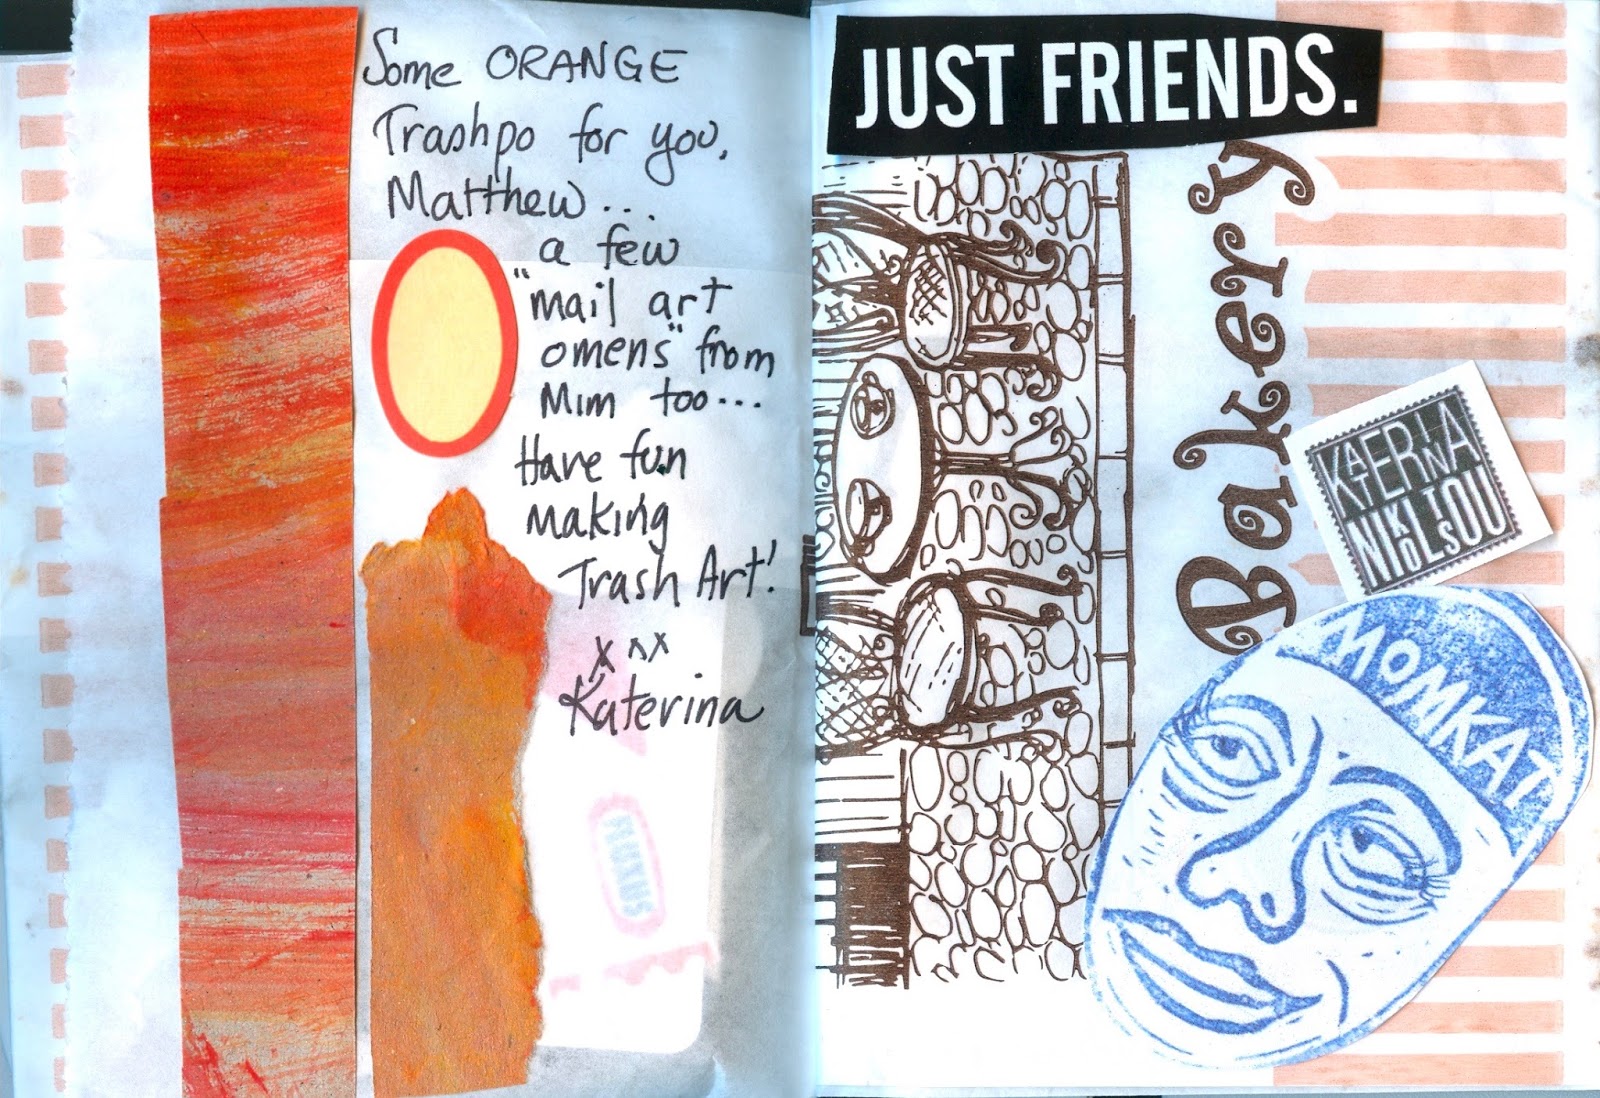 Some ORANGE
Trashpo for you,
Matthew...
a few
"mail art
omens" from
Mim too...
Have fun
making
Trash Art!
x xx
Katerina
FLUXUS
JUST FRIENDS.
Bakery
KATERINA
NIKOLTSOU
MOMKAT